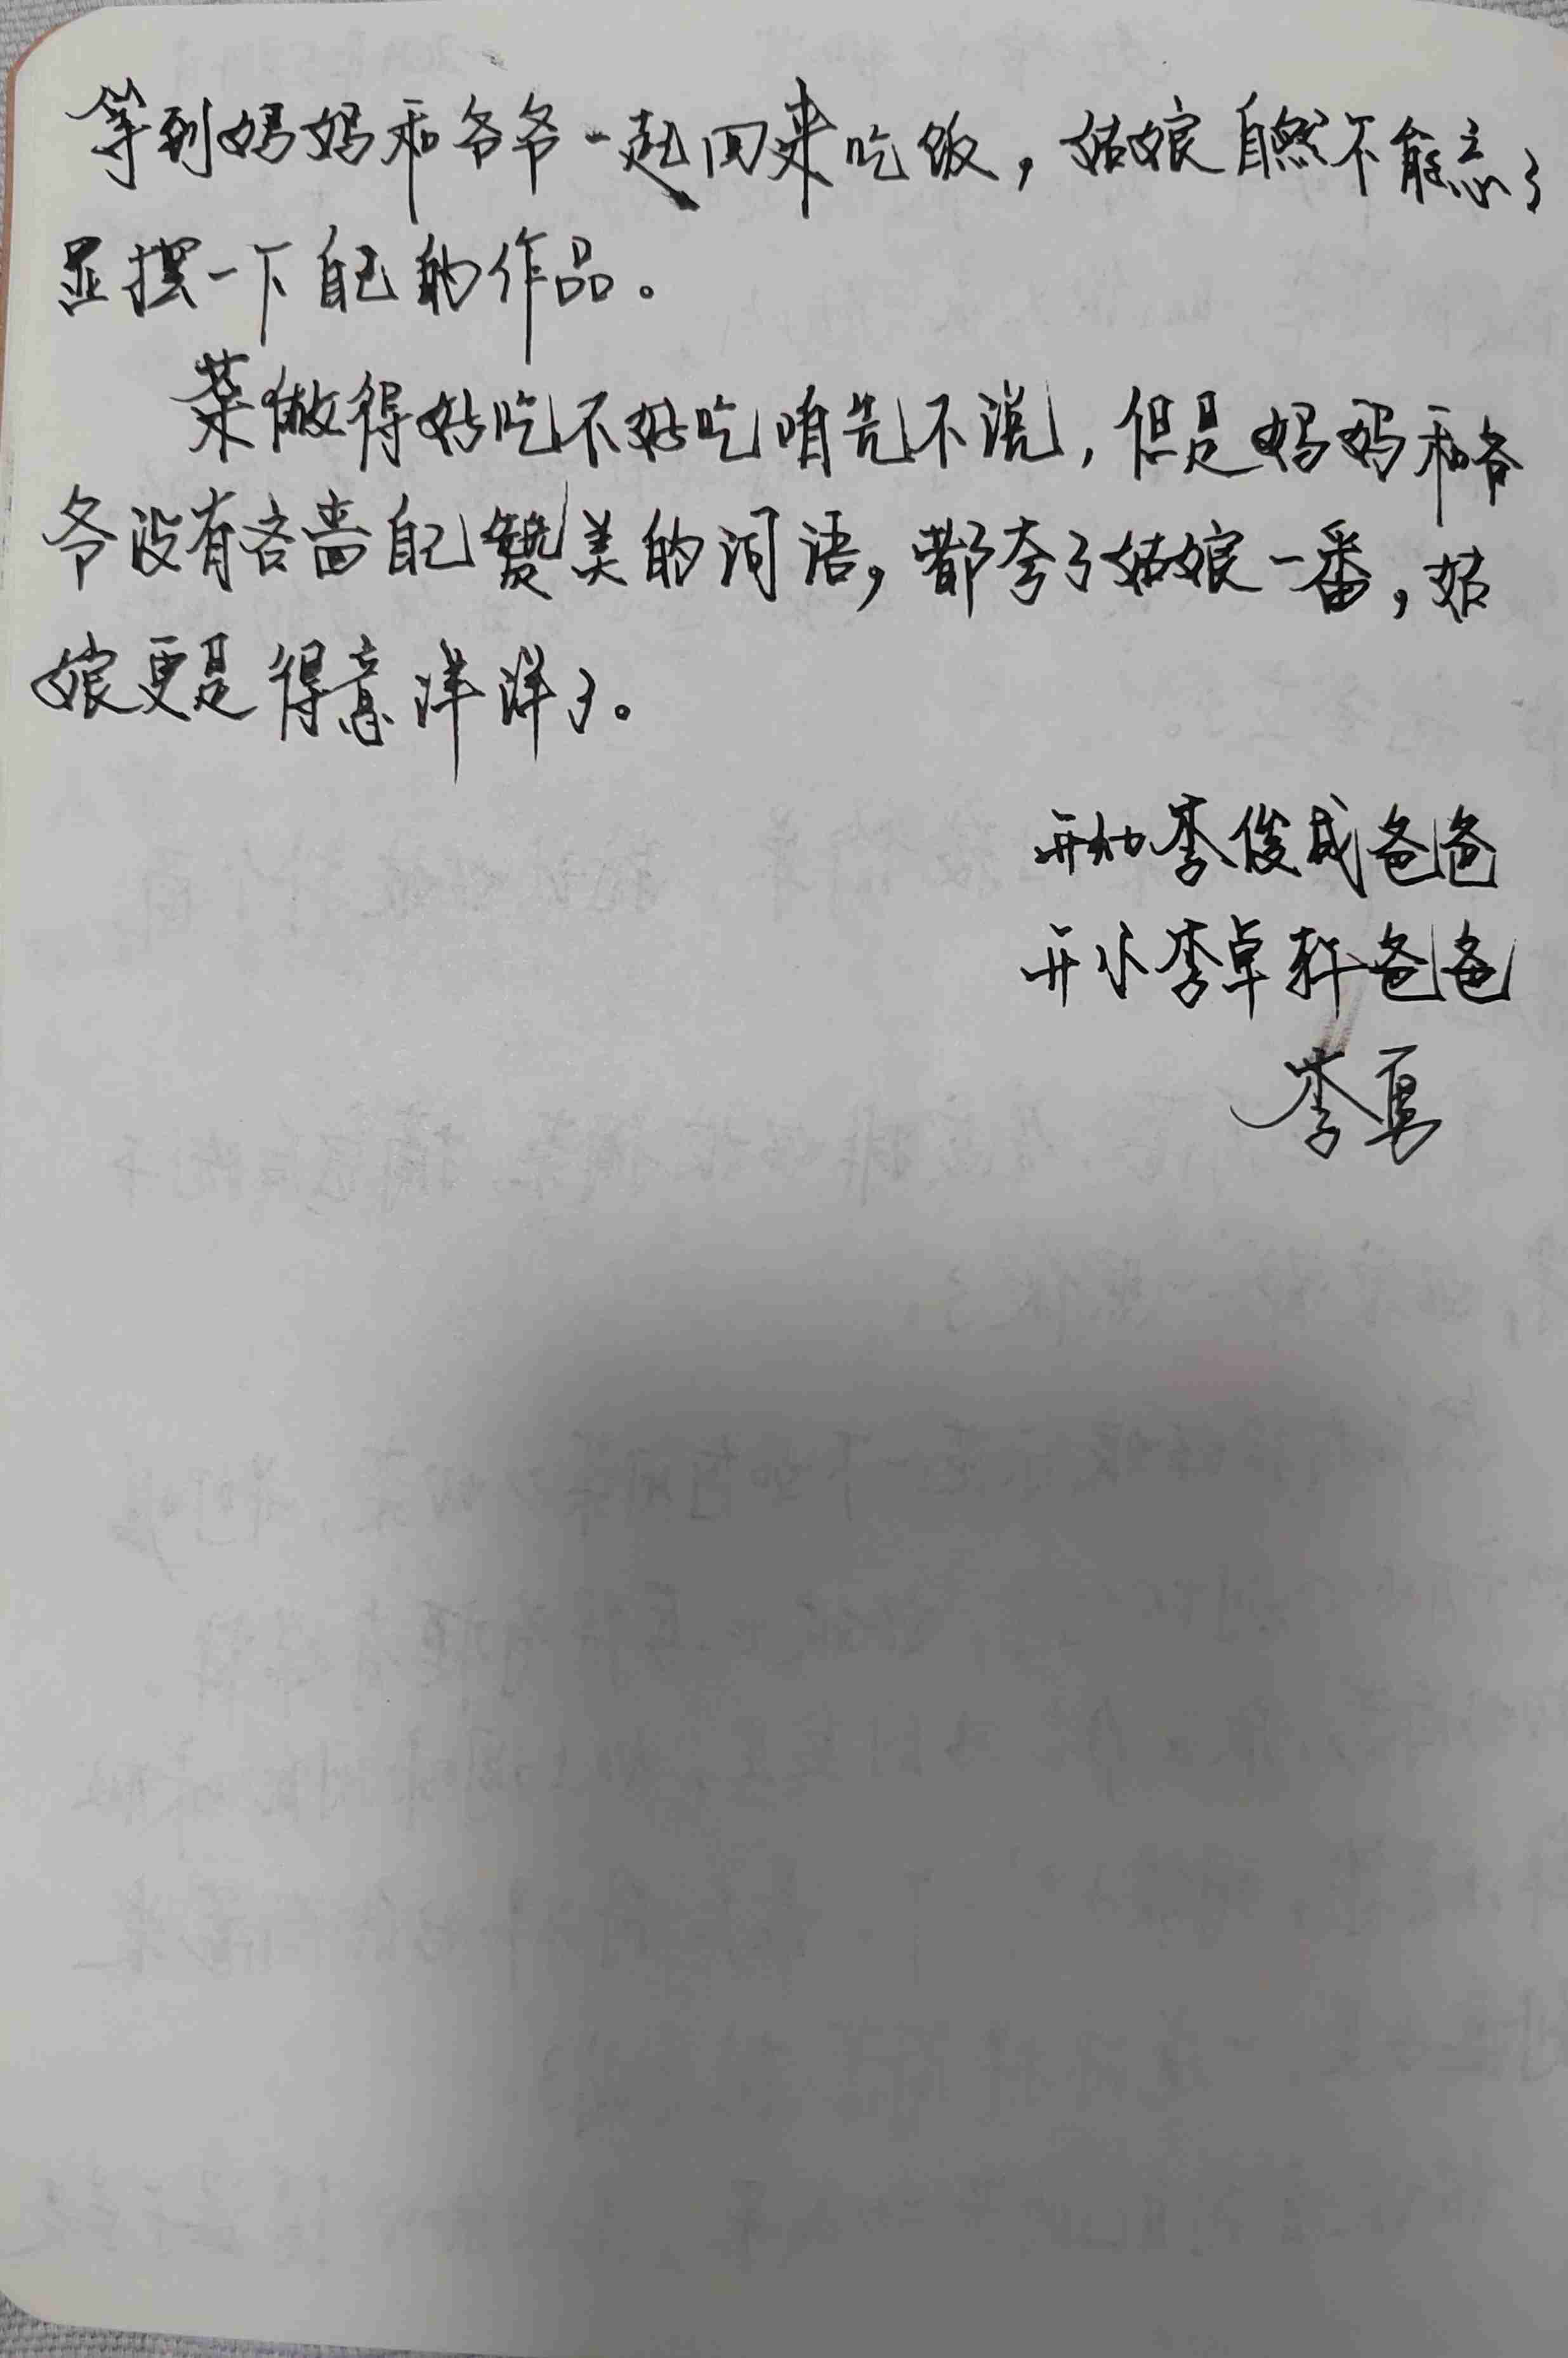 等到妈妈和爷爷一起回来吃饭，姑娘自然不能忘了
显摆一下自己的作品。
菜做得好吃不好吃咱先不说，但是妈妈和爷
爷没有吝啬自己赞美的词语，都夸了姑娘一番，姑
娘更是得意洋洋了。
开幼李俊成爸爸
开小李卓轩爸爸
李勇